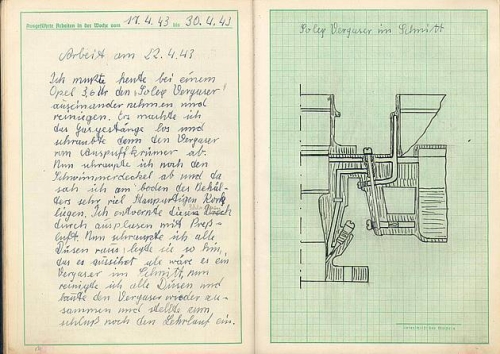 Ausgeführte Arbeiten in der Woche vom 17.4.43 bis 30.4.43
Arbeit am 22.4.43
Ich mußte heute bei einem
Opel 3,6 ltr den „Solex Vergaser"
auseinander nehmen und
reinigen. Es machte ich
das Gasgestänge los und
schraubte dann den Vergaser
vom Auspuffkrümer ab.
Nun schraupte ich noch den
Schwimmerdeckel ab und da
sah ich am boden des Behäl-
ders sehr viel
liegen. Ich entvernte diesen Dreck
durch ausplasen mit Preß-
luft. Nun schraupte ich alle
Düsen raus, legte sie so hin,
das es aussiht als wäre es ein
Vergaser im Schnitt, nun
reinigte ich alle Düsen und
baute den Vergaser wieder zu-
sammen und stellte zum
schluß noch den Lehrlauf ein.
Solex Vergaser im Schnitt